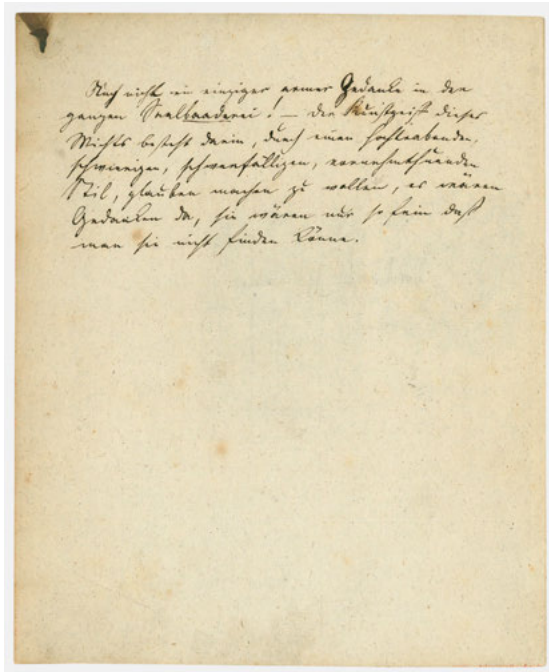 Auch nicht ein einziger armer Gedanke in der
ganzen Saalbaaderei! — Der Kunstgriff dieses
Wichts besteht darin, durch einen hochtrabenden,
schwierigen, schwerfälligen, vornehmthuenden
Stil, glauben machen zu wollen, es wären
Gedanken da, sie wären nur so fein daß
man sie nicht finden könne.